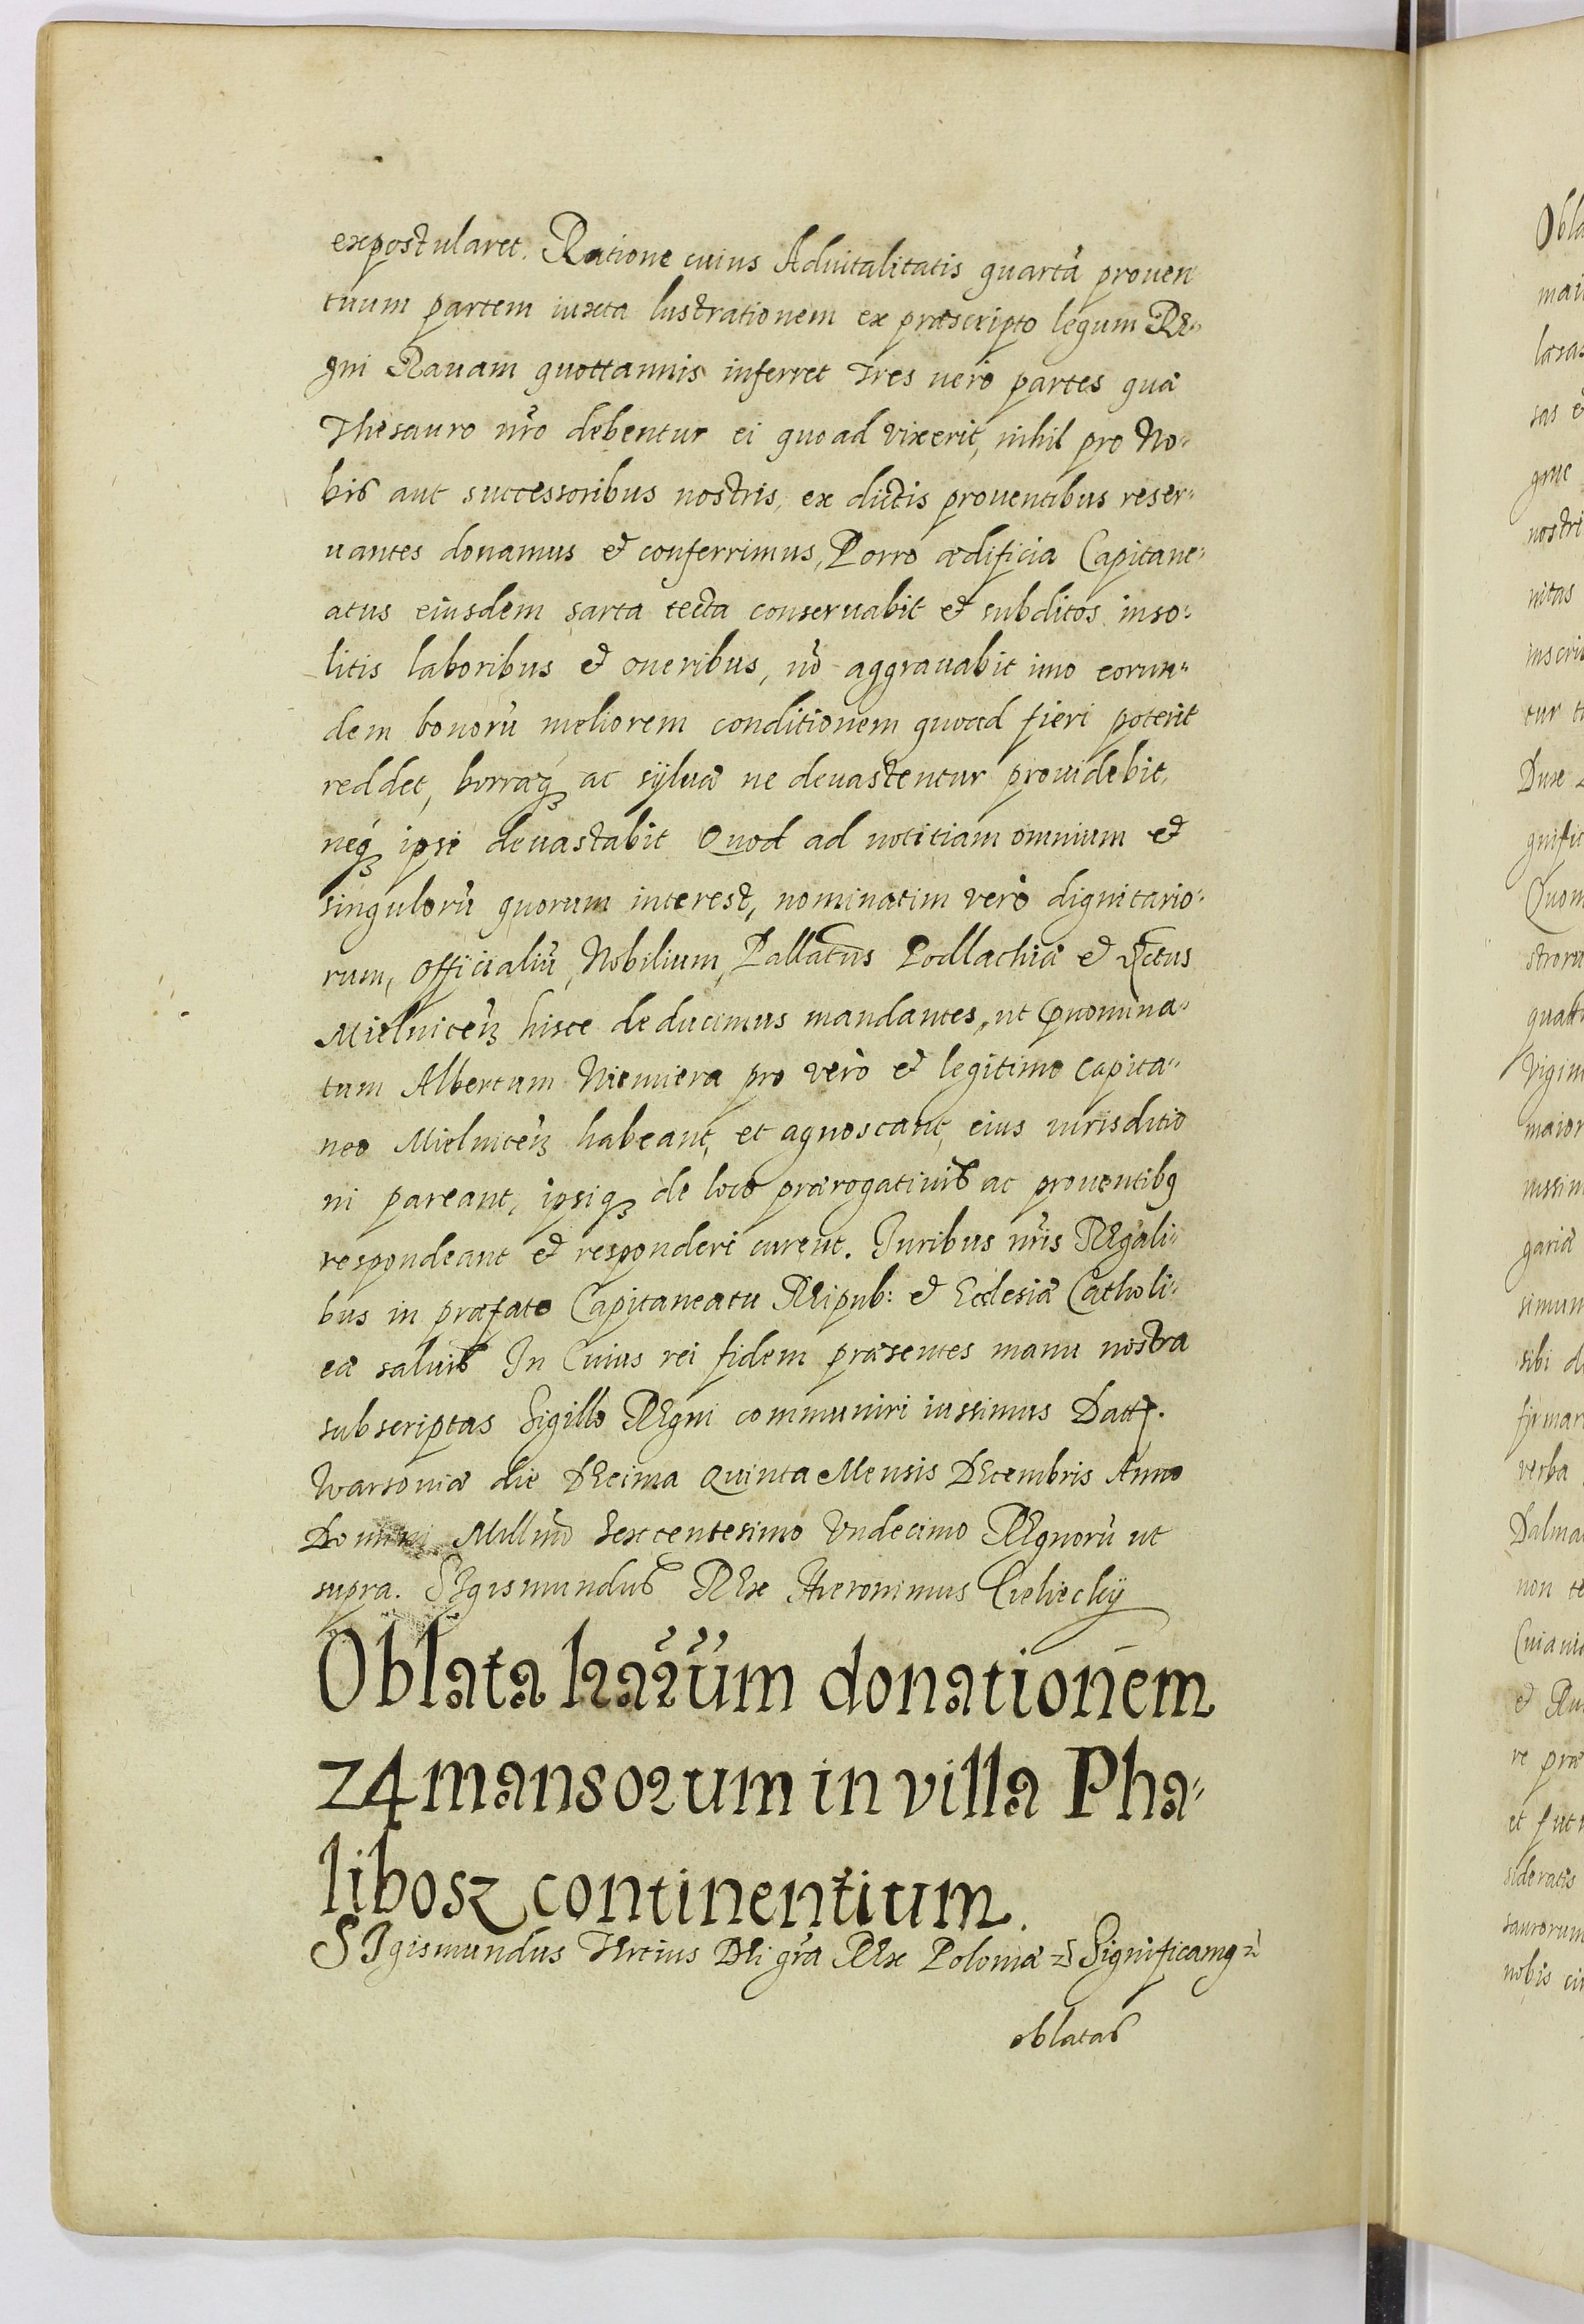 expostularet. Ratione cuius Aduitalitatis quartā prouen
tuum partem iuxta lustrationem ex præscripto legum Re-
gni Rauam quottannis inferret Tres verò partes quæ
Thesauro nr̃o debentur ei quoad vixerit, nihil pro No-
bis aut successoribus nostris, ex dictis prouentibus reser-
uantes donamus et conferrimus, Porro ædificia Capitane-
atus eiusdem sarta tecta conseruabit et subditos inso-
litis laboribus et oneribus, nõ aggrauabit imo eorun-
dem bonorũ meliorem conditionem quoad fieri poterit
reddet, borraqꝫ ac syluæ ne deuastentur prouidebit,
neqꝫ ipse deuastabit Quod ad notitiam omnium et
singulorũ quorum interest, nominatim verò dignitario-
rum, Officialiũ, Nobilium, Pallatus Podlachiæ et Dctus
Mielnicen̄ hisce deducimus mandantes, ut prnomina-
tum Albertum Niemiera pro verò et legitimo Capita-
neo Mielnicen̄ habeant, et agnoscant, eius iurisditio
ni pareant, ipsiqꝫ de loco prærogatiuis ac prouentibꝫ
respondeant et responderi curent. Iuribus nr̃is Regali-
bus in præfato Capitaneatu Reipub: et Ecclesiæ Catholi-
cæ saluis In Cuius rei fidem præsentes manu nostra
subscriptas Sigillo Regni communiri iussimus Datt.
Warsouiæ die Decima Quinta Mensis Decembris Anno
Domini Millmo Sexcentesimo Undecimo Regnorũ ut
supra. Sigismundus Rex Hieronimus Cieliecky
Oblata lrarum donationem
24 mansorum in villa Pha-
libosz continentium.
Sigismundus Tertius Dei gr̃a Rex Poloniæ etc̃ Significamꝫ etc̃
oblatas